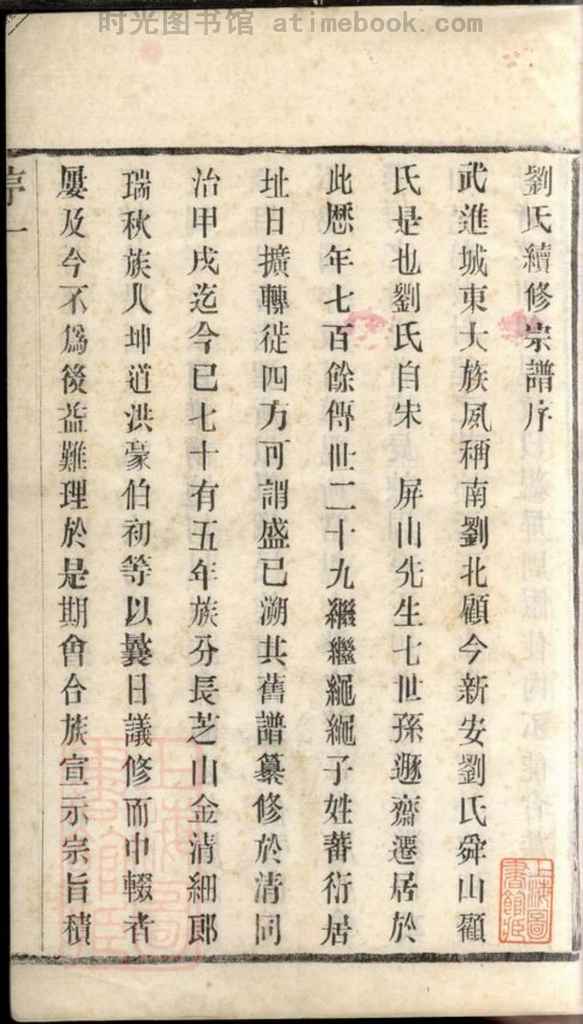 时光图书馆 atimebook.com
劉氏續修宗譜序
武進城東大族夙稱南劉北顧今新安劉氏舜山顧
氏是也劉氏自宋 屏山先生七世孫遯齋遷居於
此歷年七百餘傳世二十九繼繼繩繩子姓蕃衍居
址日擴轉徙四方可謂盛已溯其舊譜纂修於清同
治甲戌迄今已七十有五年族分長芝山金清細郎
瑞秋族人坤道洪豪伯初等以曩日議修而中輟者
屢及今不爲後益難理於是期會合族宣示宗旨積
序一
上海圖書館藏